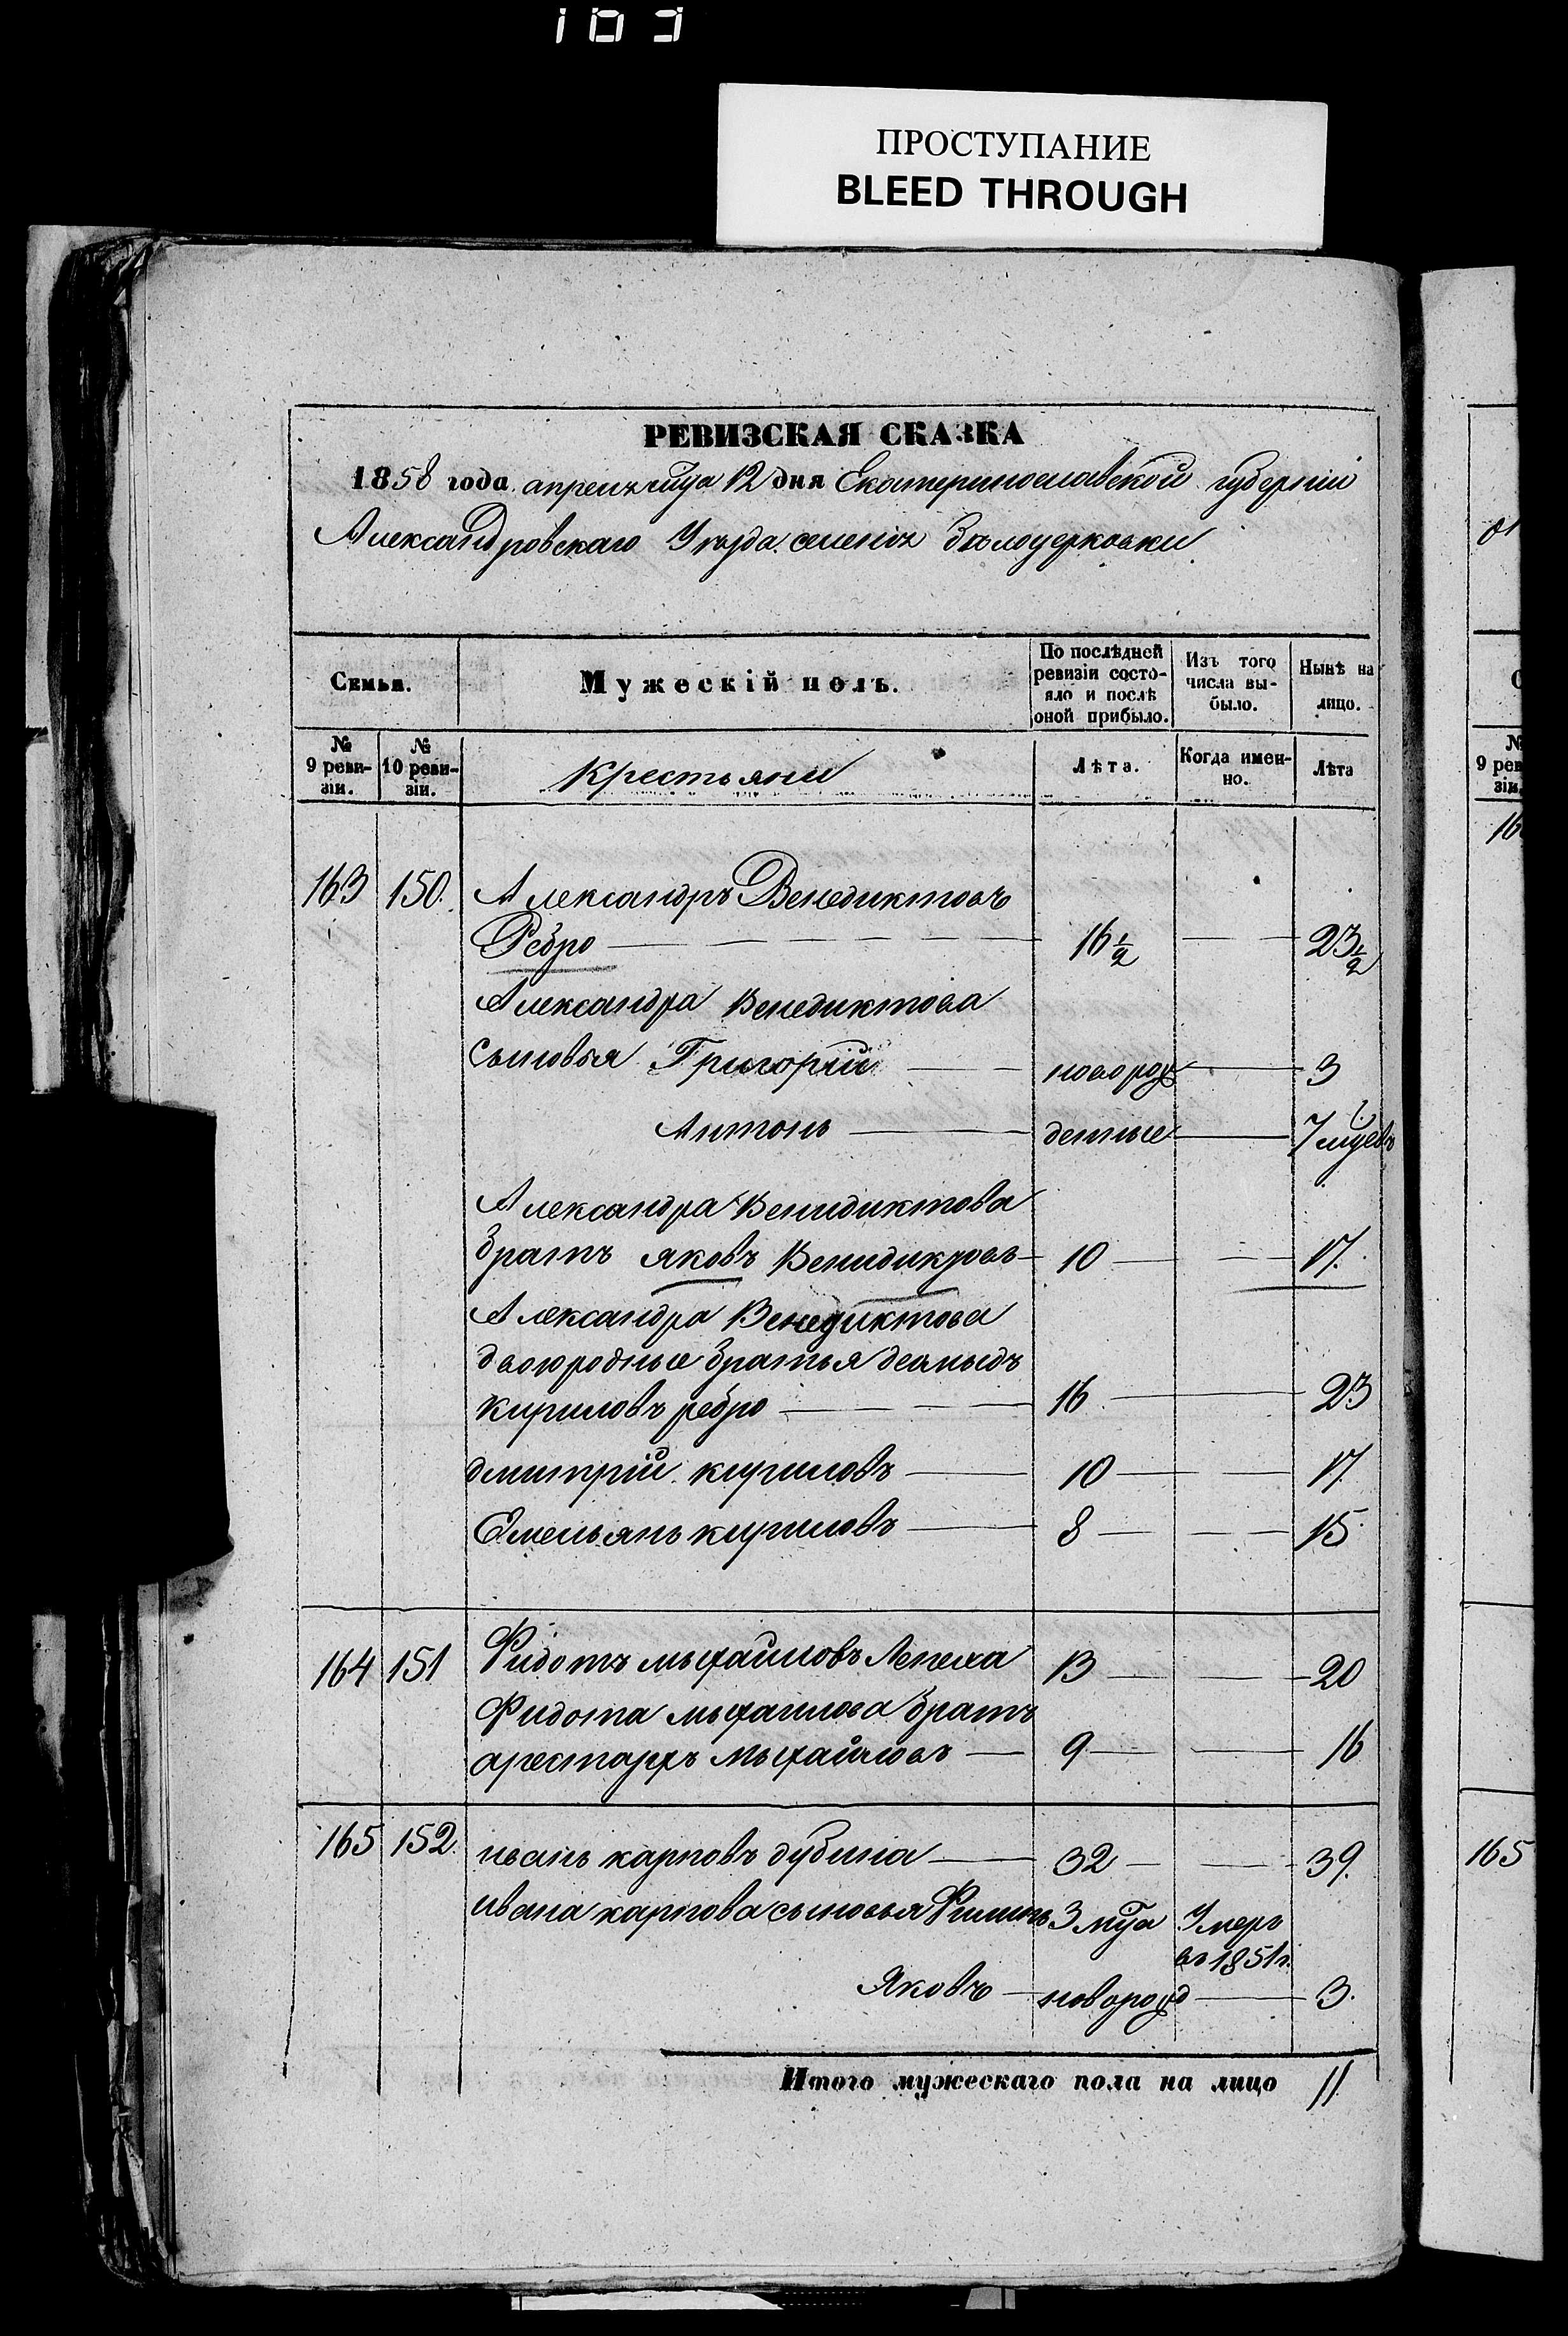 103
ПРОСТУПАНИЕ
BLEED THROUGH
РЕВИЗСКАЯ СКАЗКА
1858 года апреля мца 12 дня Екатеринославской губерніи
Александровскаго Уезда селенія Белоцерковки
Семьи.
Мужескій полъ.
По послѣдней ревизіи состо-
яло и послѣ оной прибыло.
Изъ того числа вы-
было.
Нынѣ на лицо.
№ 9 реви-
зіи.
№ 10 реви-
зіи.
Крестьяни
Лѣта.
Когда имен-
но.
Лѣта
163 150. Александръ Венедиктовъ
Ребро 16 1/2 23 1/2
Александра Венедиктова
сыновья Григорій новорож 3
Антонъ денные 7 мцевъ
Александра Венидиктова
братъ яковъ Венидиктовъ 10 17.
Александра Венедиктова
двоюродные братья демыдъ
кириловъ ребро 16 23
дмитрій кириловъ 10 17
Емельянъ кириловъ 8 15
164 151 Фидотъ мыхайловъ Лепеха 13 20
Фидота мыхайлова братъ
арестархъ мыхайловъ 9 16
165 152. иванъ карповъ дубина 32 39.
ивана карпова сыновья Филипъ 3 мца Умеръ
въ 1851г.
Яковъ новорожд 3.
Итого мужескаго пола на лицо 11
№
9 рев
зіи.
16
165